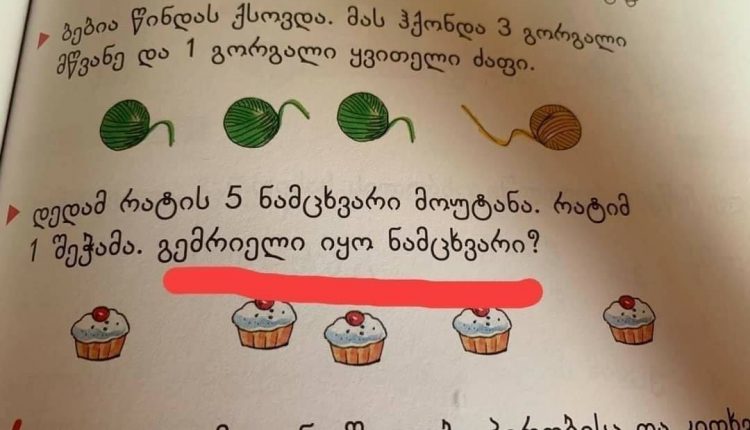 ბებია წინდას ქსოვდა. მას ჰქონდა 3 გორგალი
მწვანე და 1 გორგალი ყვითელი ძაფი.
დედამ რატის 5 ნამცხვარი მოუტანა. რატიმ
1 შეჭამა. გემრიელი იყო ნამცხვარი?